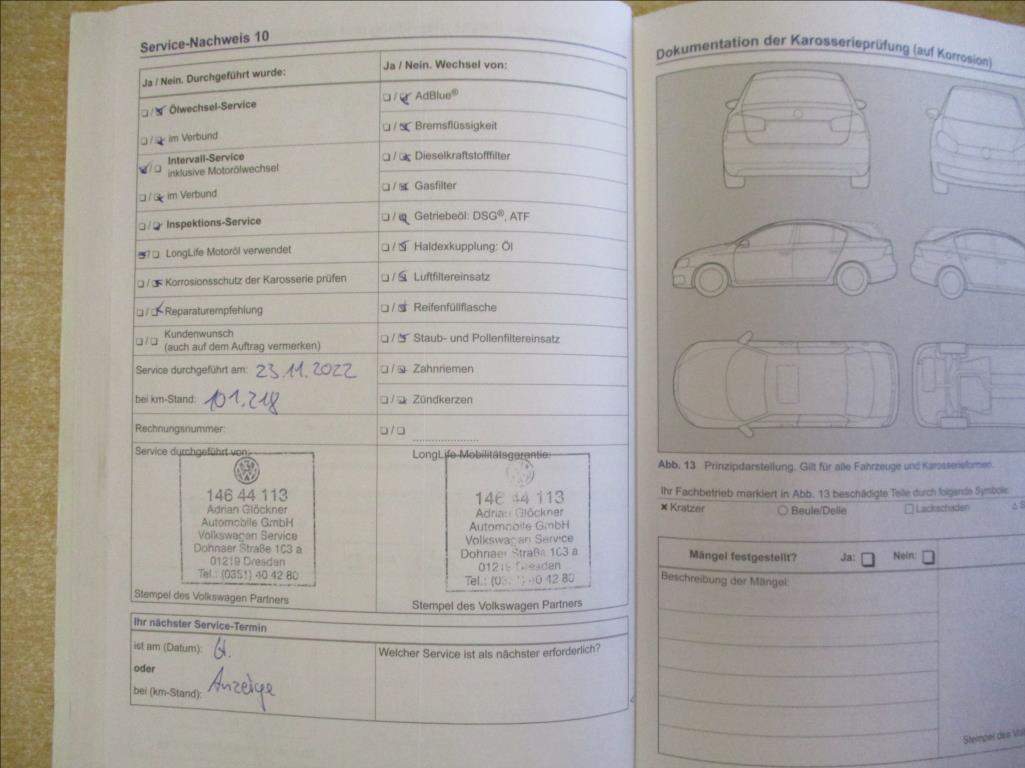 Service-Nachweis 10
Ja / Nein. Durchgeführt wurde:
Ölwechsel-Service
im Verbund
Intervall-Service
inklusive Motorölwechsel
im Verbund
Inspektions-Service
LongLife Motoröl verwendet
Korrosionsschutz der Karosserie prüfen
Reparaturempfehlung
Kundenwunsch
(auch auf dem Auftrag vermerken)
Service durchgeführt am: 23.11.2022
bei km-Stand: 101.218
Rechnungsnummer:
Service durchgeführt von:
146 44 113
Adrian Glöckner
Automobile GmbH
Volkswagen Service
Dohnaer Straße 103 a
01219 Dresden
Tel.: (0351) 40 42 80
Stempel des Volkswagen Partners
Ja / Nein. Wechsel von:
AdBlue®
Bremsflüssigkeit
Dieselkraftstofffilter
Gasfilter
Getriebeöl: DSG®, ATF
Haldexkupplung: Öl
Luftfiltereinsatz
Reifenfüllflasche
Staub- und Pollenfiltereinsatz
Zahnriemen
Zündkerzen
LongLife Mobilitätsgarantie:
146 44 113
Adrian Glöckner
Automobile GmbH
Volkswagen Service
Dohnaer Straße 103 a
01219 Dresden
Stempel des Volkswagen Partners
Ihr nächster Service-Termin
ist am (Datum):
oder
bei (km-Stand): Anzeige
Welcher Service ist als nächster erforderlich?
Dokumentation der Karosserieprüfung (auf Korrosion)
Abb. 13 Prinzipdarstellung. Gilt für alle Fahrzeuge und Karosserieformen.
Ihr Fachbetrieb markiert in Abb. 13 beschädigte Teile durch folgende Symbole:
Kratzer
Beule/Delle
Lackschaden
Mängel festgestellt? Ja: Nein:
Beschreibung der Mängel:
Stempel des